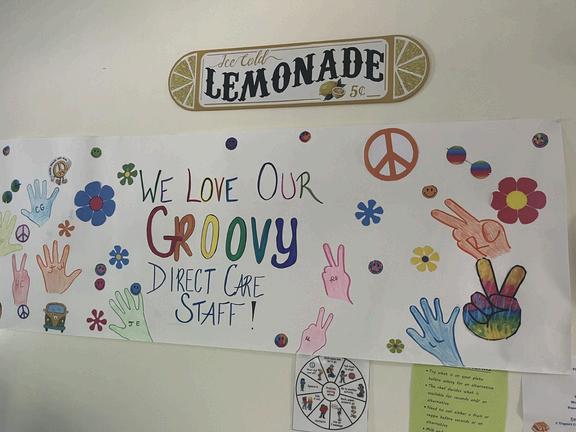 Ice Cold
LEMONADE
5¢
WE LOVE OUR
GROOVY
DIRECT CARE
STAFF!
CG
RO
JE
Try what is on your plate
before asking for an alternative
The chef decides what is
available for seconds and/or
alternative
Need to eat either a fruit or
veggie before seconds or an
alternative